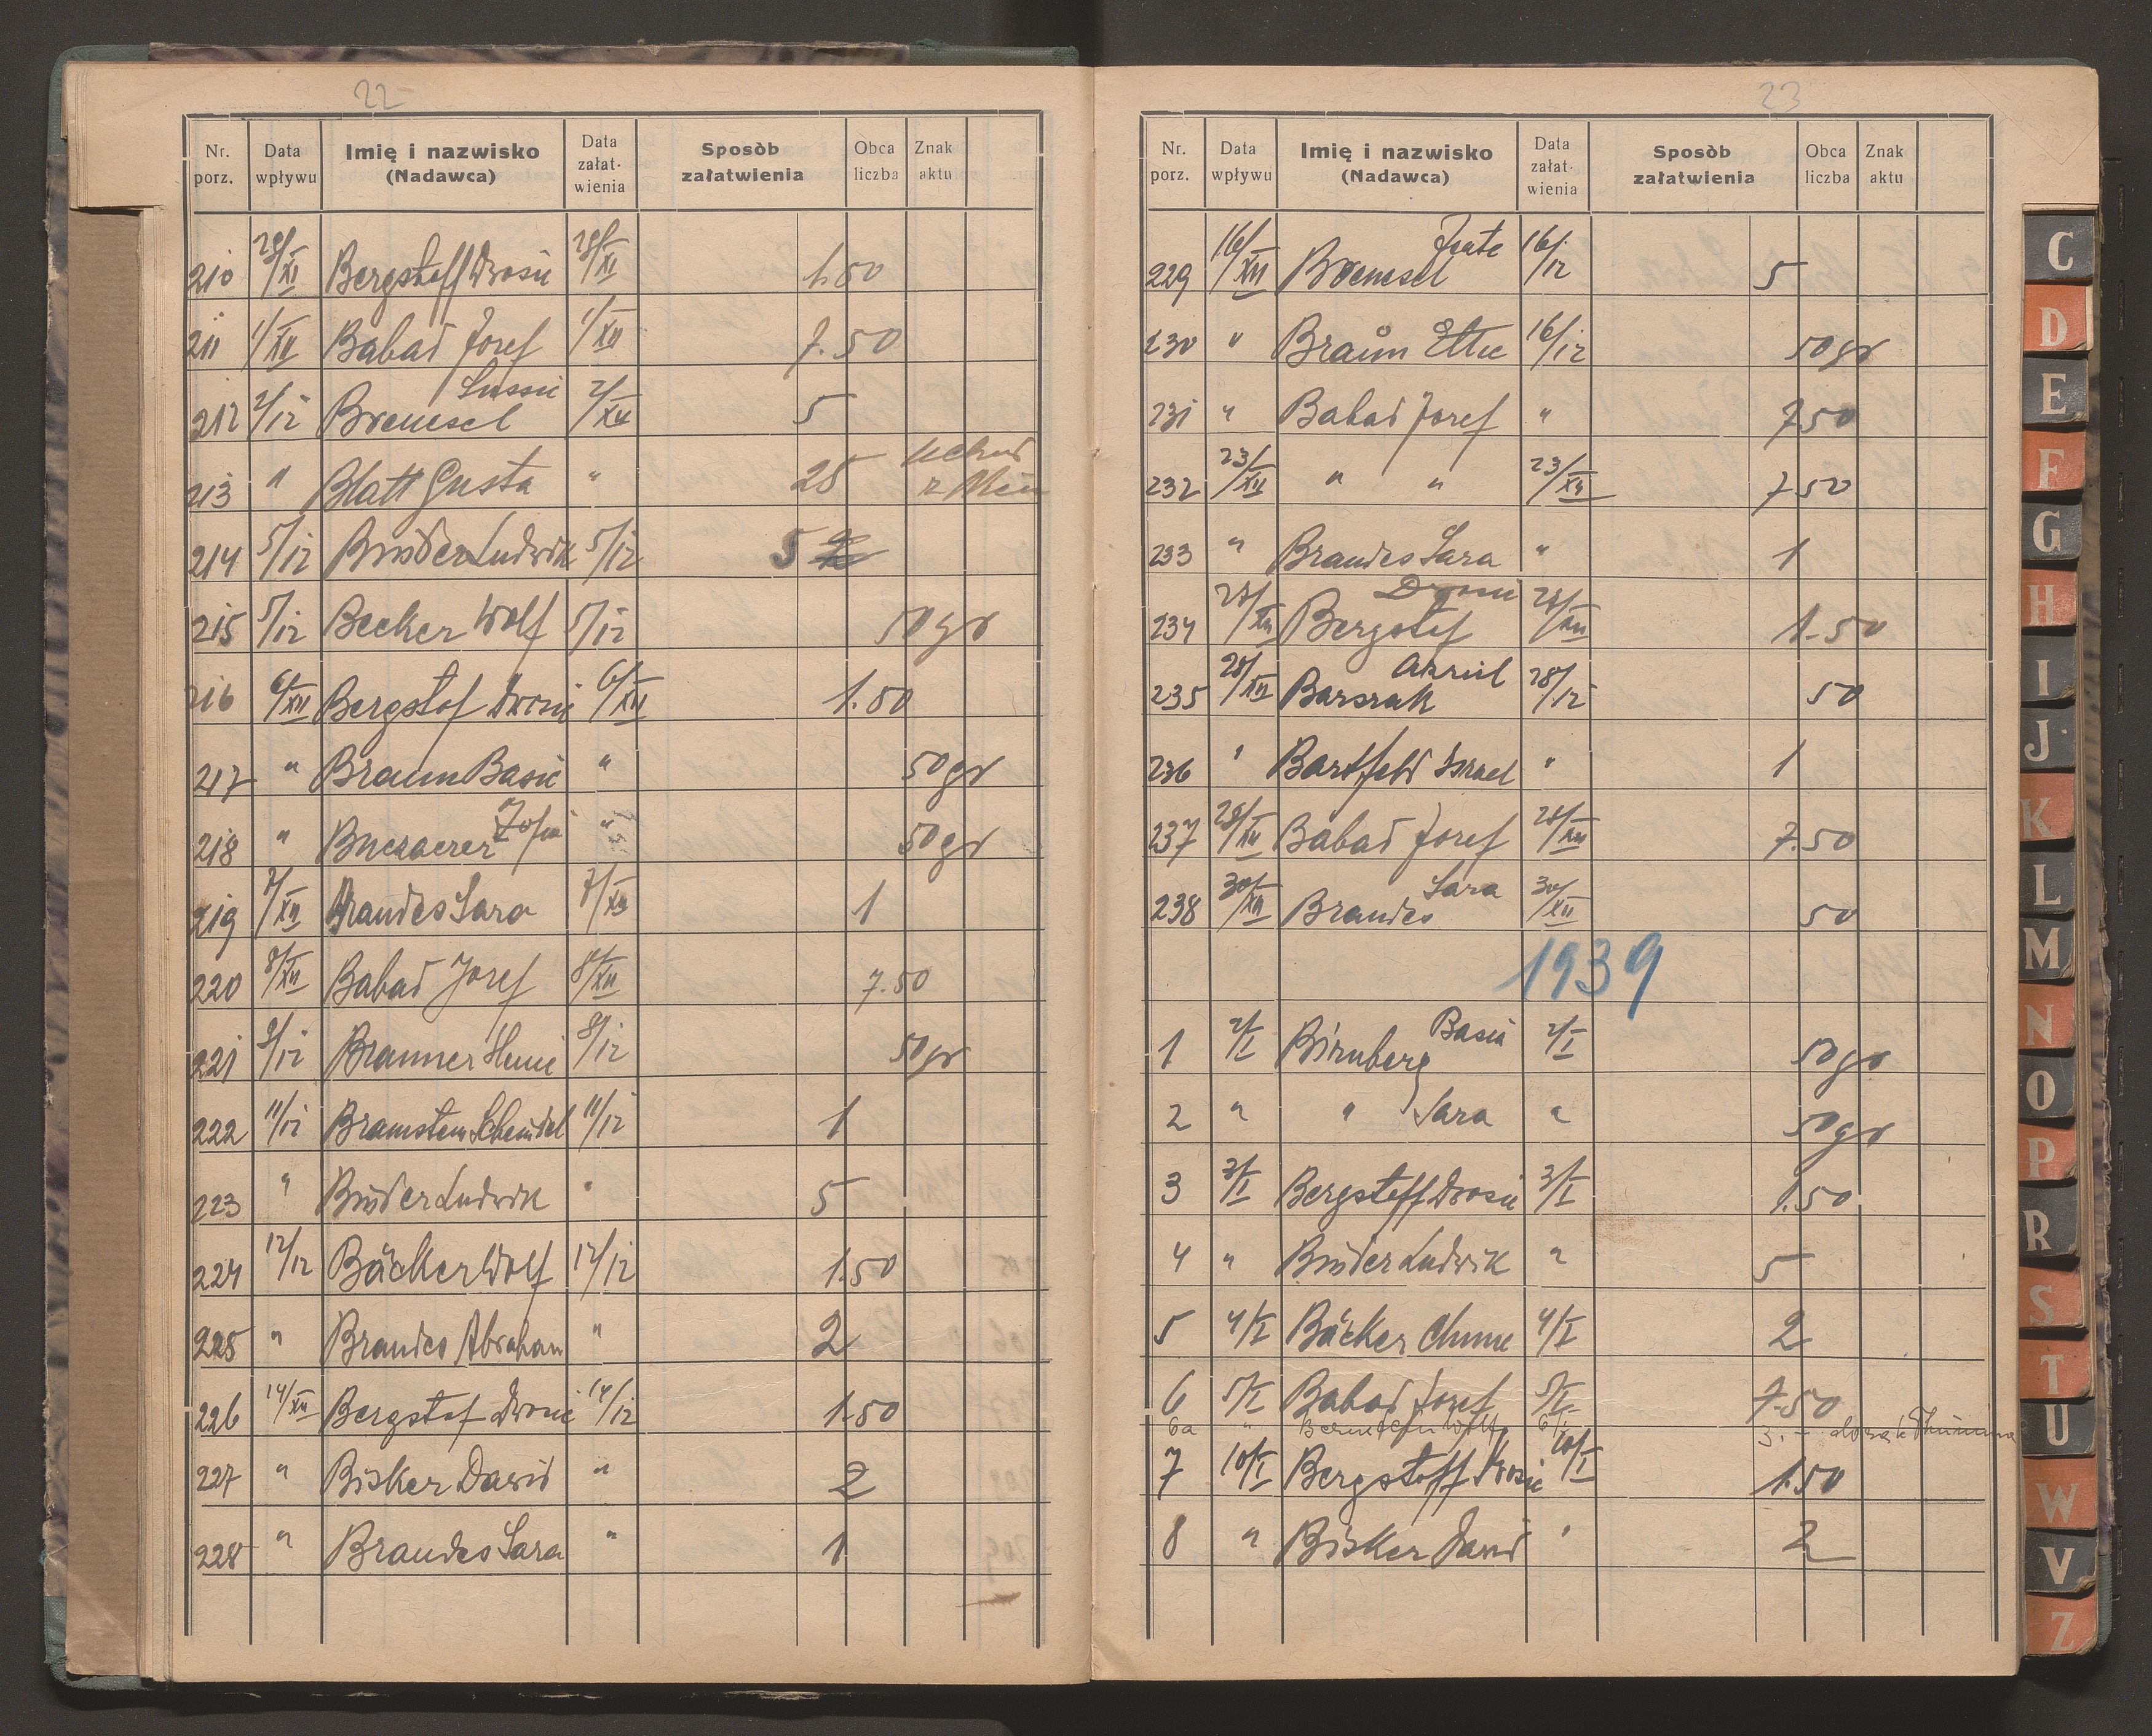 22
Nr. porz. Data wpływu Imię i nazwisko (Nadawca) Data załat-wienia Sposòb załatwienia Obca liczba Znak aktu
210 28/XI Bergstoff Drosie 28/XI 1.50
211 1/XII Babad Josef 1/XII 7.50
212 2/12 Bremesel Lussie 2/XII 5
213 " Blatt Gusta " 25
214 5/12 Binder Ludwik 5/12 5
215 5/12 Becker Wolf 5/12 50 gr
216 6/XII Bergstof Drosie 6/XII 1.50
217 " Braun Basie " 50 gr
218 " "  50 gr
219 7/XII Brandes Sara 7/XII 1
220 8/XII Babad Josef 8/XII 7.50
221 8/12 Branner 8/12 50 gr
222 11/12 Scheindel 11/12 1
223 " Binder Ludwik " 5
224 12/12 Bäcker Wolf 12/12 1.50
225 " Brandes Abraham " 2
226 14/XII Bergstof Drosie 14/12 1.50
227 " Bisker Dawid " 2
228 " Brandes Sara " 1
23
Nr. porz. Data wpływu Imię i nazwisko (Nadawca) Data załat-wienia Sposòb załatwienia Obca liczba Znak aktu
229 16/XII Bremesel 16/12 5
230 " Braun Ettie 16/12 50 gr
231 " Babad Josef " 7.50
232 23/XII " " 23/XII 7.50
233 " Brandes Sara " 1
234 27/XII Bergstof Drosie 27/XII 1.50
235 28/XII 28/12 50
236 " Bartfeld Israel " 1
237 28/XII Babad Josef 28/XII 7.50
238 30/XII Brandes Sara 30/XII 50
1939
1 2/I Birnberg Basia 2/I 50 gr
2 " " Sara " 50 gr
3 3/I Bergstoff Drosie 3/I 1.50
4 " Binder Ludwik " 5
5 4/I Bäcker 4/I 2
6 5/I Babad Josef 5/I 7.50
6a " 6/I 3.-
7 10/I Bergstoff Drosie 10/I 1.50
8 " Bisker Dawid " 2
C
D
E
F
G
H
I
J
K
L
M
N
O
P
R
S
T
U
W
V
Z